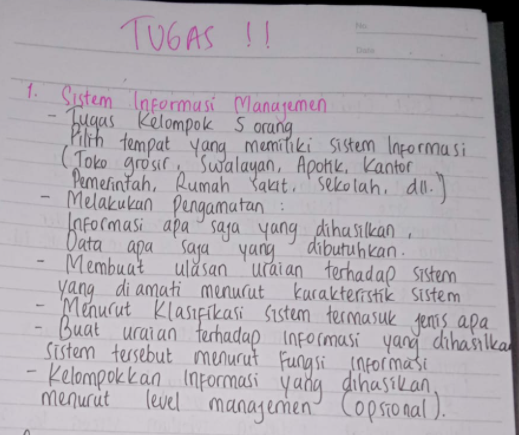 TUGAS !!
No
Date
1. Sistem Informasi Manajemen
- Tugas Kelompok 5 orang
Pilih tempat yang memiliki sistem Informasi
(Toko grosir, Swalayan, Apotik, Kantor
Pemerintah, Rumah Sakit, Sekolah, dll.)
- Melakukan Pengamatan :
Informasi apa saja yang dihasilkan,
Data apa saja yang dibutuhkan.
- Membuat ulasan uraian terhadap sistem
yang di amati menurut karakteristik sistem
- Menurut Klasifikasi sistem termasuk jenis apa
- Buat uraian terhadap informasi yang dihasilkan
sistem tersebut menurut Fungsi informasi
- Kelompokkan Informasi yang dihasilkan
menurut level manajemen (opsional).